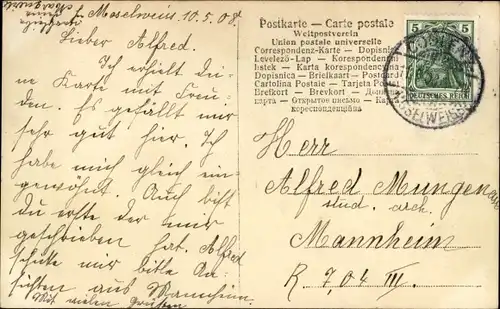 Moselweis. 10.5.08.
Lieber Alfred.
Ich erhielt dei-
ne Karte mit Freu-
den. Es gefällt mir
sehr gut hier. Ich
habe mich gleich ein-
gewöhnt. Auch bist
du erste der mir
geschrieben hat. Alfred
schicke mir bitte An-
sichten aus Mannheim.
Mit vielen Grüßen
Postkarte — Carte postale
Weltpostverein
Union postale universelle
Correspondenz-Karte — Dopisnice
Levelező-Lap — Korespondenz
listek — Karta korespondencyjna
Dopisnica — Briefkaart — Postcard
Cartolina Postale — Tarjeta Postal
Brefkort — Brevkort —
карта — Открытое письмо —
кореспонденційна
5 5
DEUTSCHES REICH
Herr
Alfred Mungenast
stud. arch.
Mannheim
R 7,04 III.